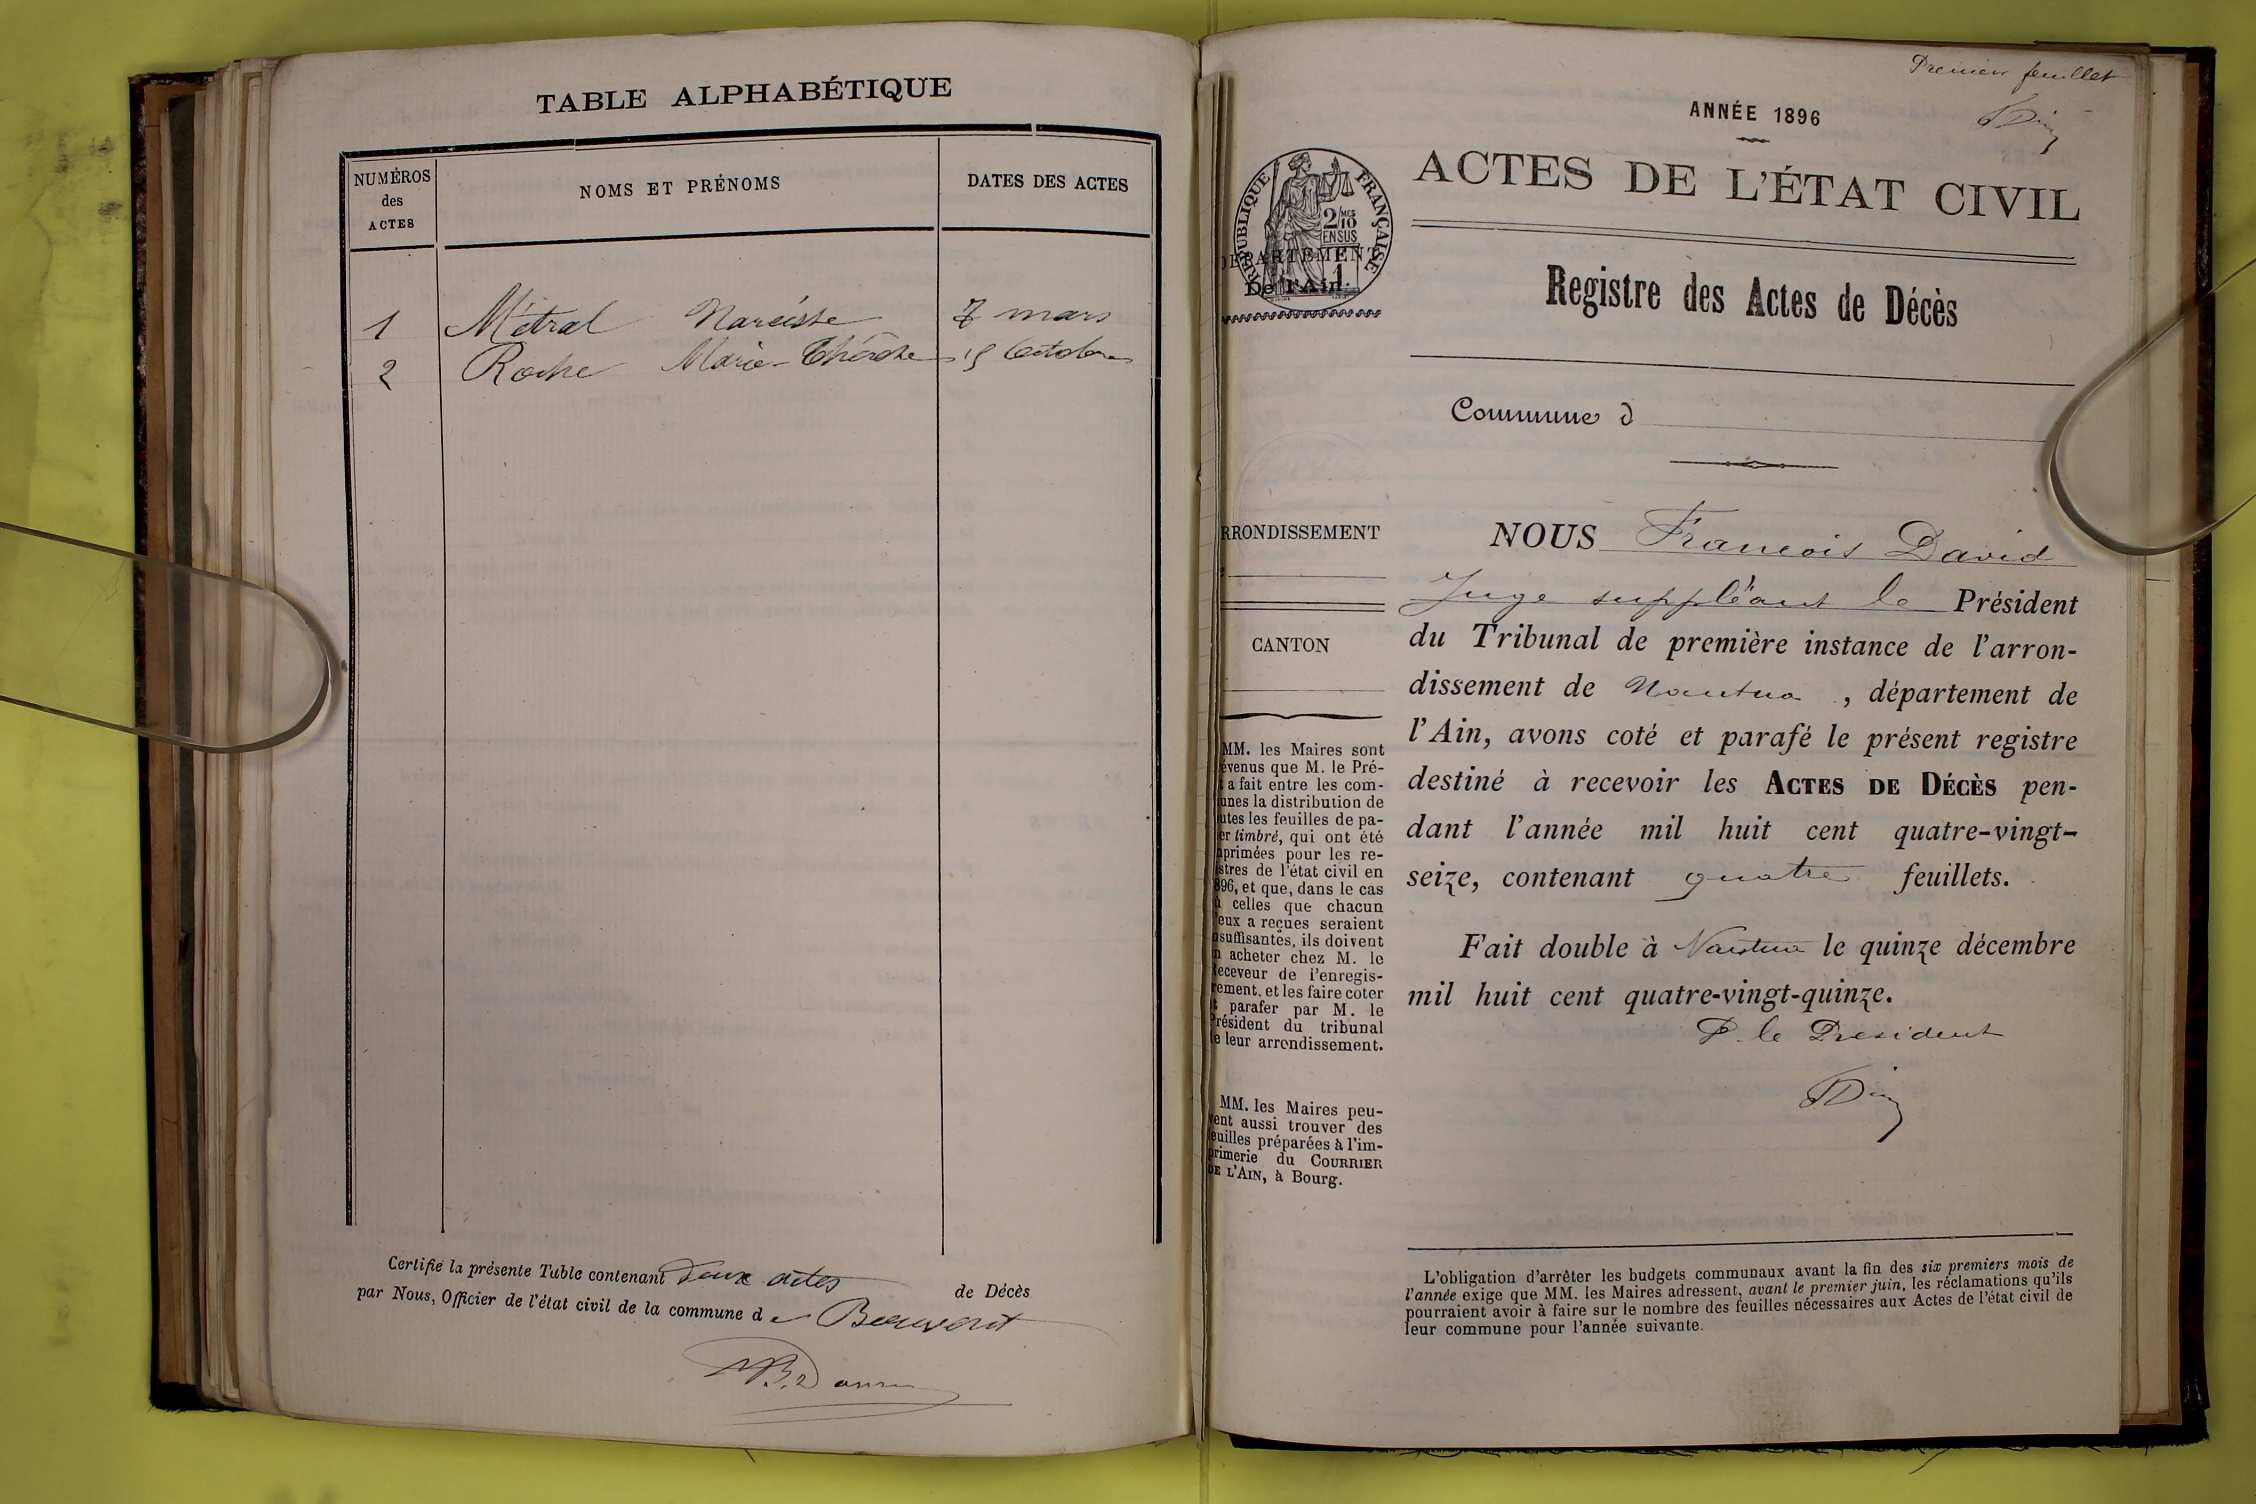 TABLE ALPHABÉTIQUE
NUMÉROS
des
ACTES
NOMS ET PRÉNOMS
DATES DES ACTES
1 Métral Narcisse 7 mars
2 Roche Marie-Thérèse 15 Octobre
Certifié la présente Table contenant deux actes de Décès
par Nous, Officier de l'état civil de la commune de Beauvent
Premier feuillet
ANNÉE 1896
ACTES DE L'ÉTAT CIVIL
RÉPUBLIQUE FRANÇAISE
2/10 MES
EN SUS
DÉPARTEMENT
De l'Ain.
Registre des Actes de Décès
Commune d
RRONDISSEMENT
CANTON
MM. les Maires sont
évenus que M. le Pré-
t a fait entre les com-
unes la distribution de
utes les feuilles de pa-
er timbré, qui ont été
nprimées pour les re-
istres de l'état civil en
896, et que, dans le cas
ù celles que chacun
'eux a reçues seraient
nsuffisantes, ils doivent
n acheter chez M. le
Receveur de l'enregis-
rement, et les faire coter
t parafer par M. le
Président du tribunal
de leur arrondissement.
MM. les Maires peu-
vent aussi trouver des
feuilles préparées à l'im-
primerie du COURRIER
DE L'AIN, à Bourg.
NOUS Francois David
Juge suppléant le Président
du Tribunal de première instance de l'arron-
dissement de Nantua, département de
l'Ain, avons coté et parafé le présent registre
destiné à recevoir les ACTES DE DÉCÈS pen-
dant l'année mil huit cent quatre-vingt-
seize, contenant quatre feuillets.
Fait double à Nantua le quinze décembre
mil huit cent quatre-vingt-quinze.
P. le President
L'obligation d'arrêter les budgets communaux avant la fin des six premiers mois de
l'année exige que MM. les Maires adressent, avant le premier juin, les réclamations qu'ils
pourraient avoir à faire sur le nombre des feuilles nécessaires aux Actes de l'état civil de
leur commune pour l'année suivante.